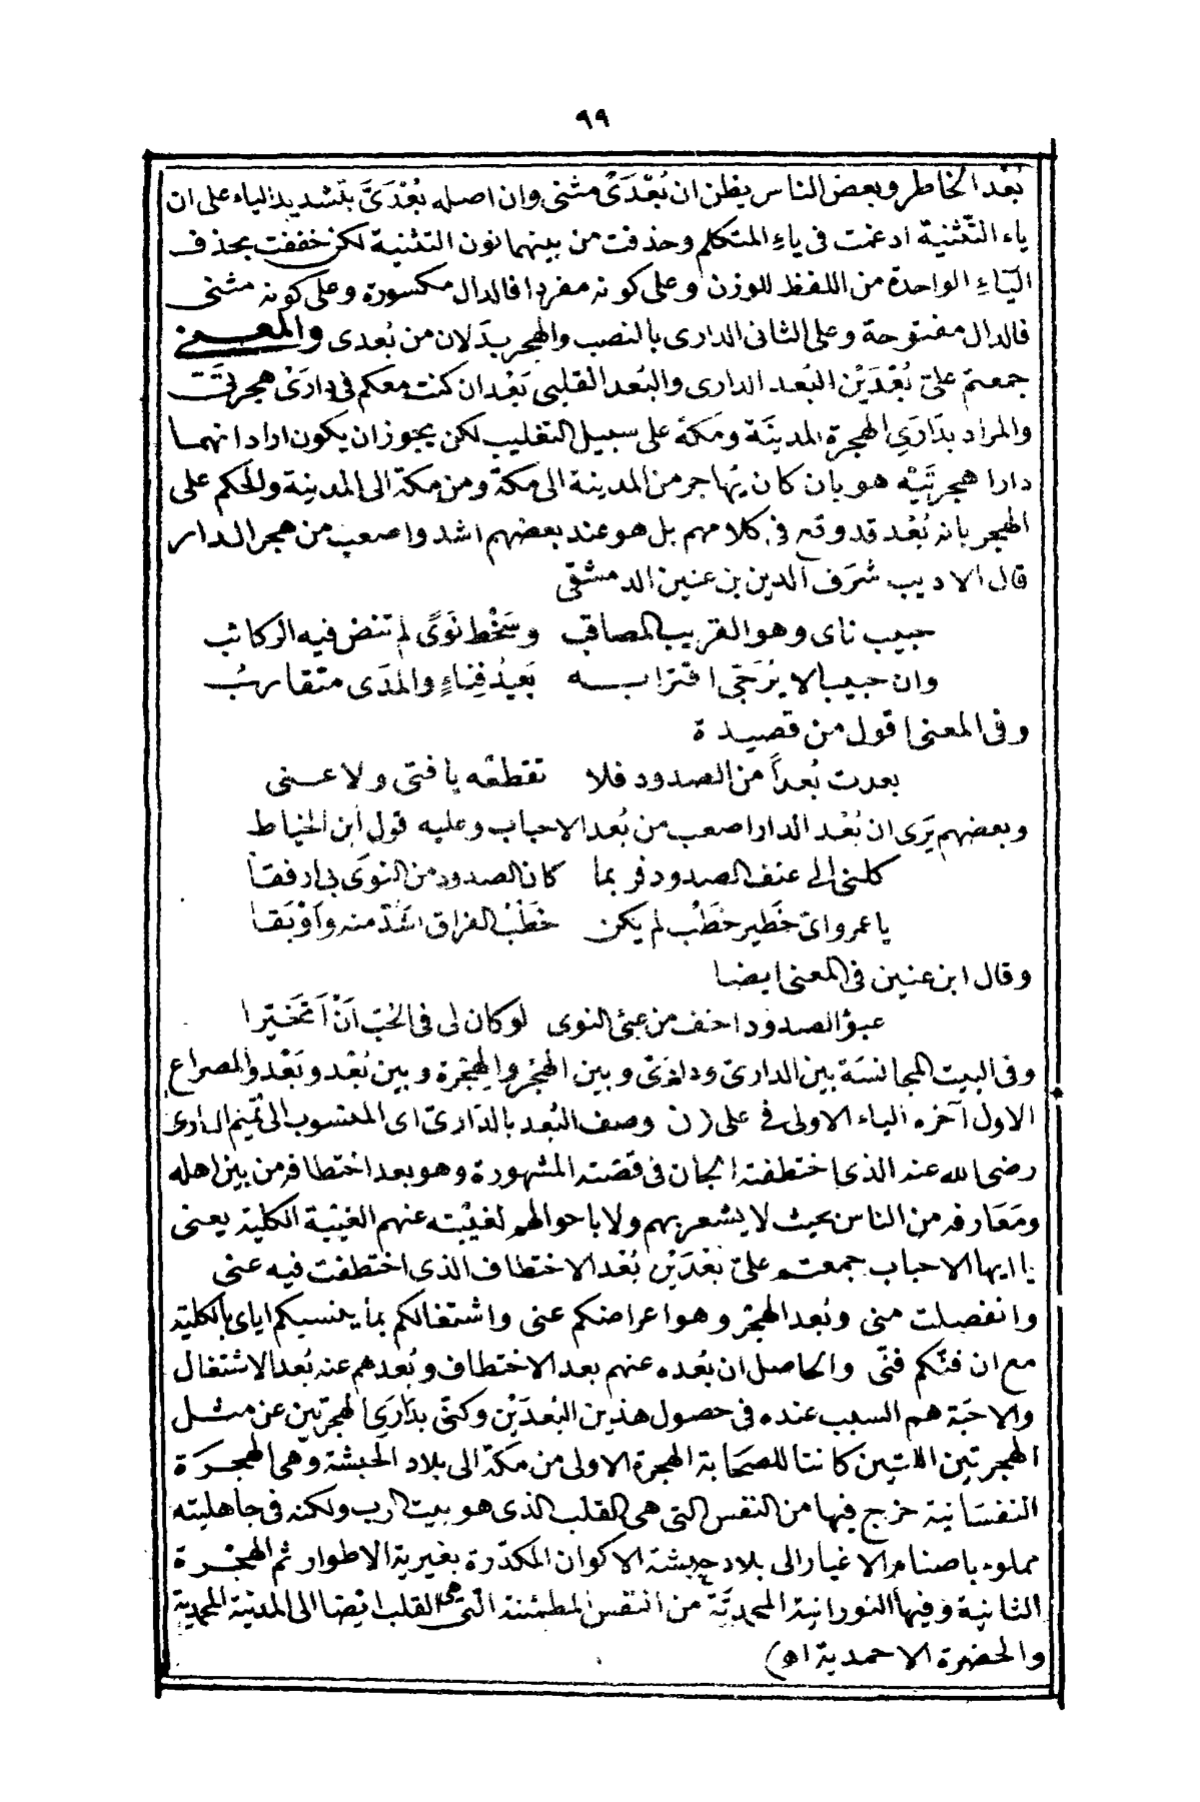 ٩٩
بُعْد الخاطر وبعض الناس يظن ان بُعْدَىْ مثنى وان اصله بُعْدَىَّ بتشديد الياء على ان
ياء التّثنية ادغمت فى ياءِ المتكلم وحذفت من بينهما نون التثنية لكن خففت بحذف
اليَاءِ الواحدة من اللفظ للوزن وعلى كونه مفردا فالدال مكسورة وعلى كونه مثنى
فالدال مفتوحة وعلى الثانى الدارى بالنصب والهجر بدّلان من بُعدى والمعـنى
جمعتم علىّ بُعْدَيْن البُعد الدارى والبُعد القلبى بَعْد ان كنت معكم فى دارَىْ هجرتَىَّ
والمراد بدَارَىِ الهجرة المدينَة ومَكة على سبيل التغليب لكن يجوز ان يكون اراد انهما
دارا هجرتَيْه هو بان كان يُهاجر من المدينة الى مكة ومن مكة الى المدينة والحكم على
الهجر بانه بُعْد قد وقع فى كلامهم بل هو عند بعضهم اشد واصعب من هجر الدار
قال الاديب شرَف الدين بن عنين الدمشقى
حبيب ناى وهو القريب المصاقب وسَخْط نَوًى لم تنض فيه الركائب
وان حبيبا لا يُرَجّى اقترابـه بَعيْدُ فِناءٍ والمدَى متقاربُ
وفى المعنى اقول من قصيدة
بعدت بُعداً من الصدود فلا تقطعْه يا فتى ولا عنى
وبعضهم يَرَى ان بُعْد الدار اصعب من بُعد الاحباب وعليه قول ابن الخياط
كلنى الى عنف الصدود فربما كان الصدود من النوَى بى ارفقا
يا عمرو اىّ خَطير خطَب لم يكن خَطْبُ الفراق اشَدّ منه وَاَوْبَقا
وقال ابن عنين فى المعنى ايضا
عبؤ الصدود اخف من عبئ النوى لو كان لى فى الحُبّ اَنْ اَتَخَيَّرا
وفى البيت المجانسَة بين الدارىّ ودارَىْ وبين الهجْر والهجْرة وبين بُعْد وبَعْد والمصراع
الاول آخره الياء الاولى فى على (ن وصف البُعد بالدّارىّ اى المنسوب الى تميم الدارى
رضى الله عنه الذى اختطفته الجان فى قصّته المشهورة وهو بعد اختطافه من بين اهله
ومَعَارفه من الناس بحيث لا يشعر بهم ولا باحوالهم لغيْبته عنهم الغيْبة الكلية يعنى
يا ايها الاحباب جمعتم علىّ بُعْدَيْن بُعْد الاختطاف الذى اختطفت فيه عنى
وانفصلت منى وبُعد الهجْر وهو اعراضكم عنى واشتغالكم بما ينسيكم اياى بالكلية
مع ان فنّكم فنّى والحاصل ان بُعده عنهم بعد الاختطاف وبُعدهم عنه بُعد الاشتغال
والاحبّة هم السبب عنده فى حصول هذين البُعدَيْن وكنّى بدَارَىِ الهجرتين عن مثل
الهجرتين اللتين كانتا للصحَابة الهجرة الاولى من مكّة الى بلاد الحبشة وهى الهجرَة
النفسَانية خرج فيها من النفس التى هى القلب الذى هو بيت الرب ولكنه فى جاهليته
مملوء باصنام الاغيار الى بلاد حبشة الاكوان المكدّرة بغيرية الاطوار ثم الهجْرة
الثانية وفيها النورانية المحمديّة من النفس المطمئنة التى هى القلب ايضا الى المدينة المحمدية
والحضرة الاحمدية اه)